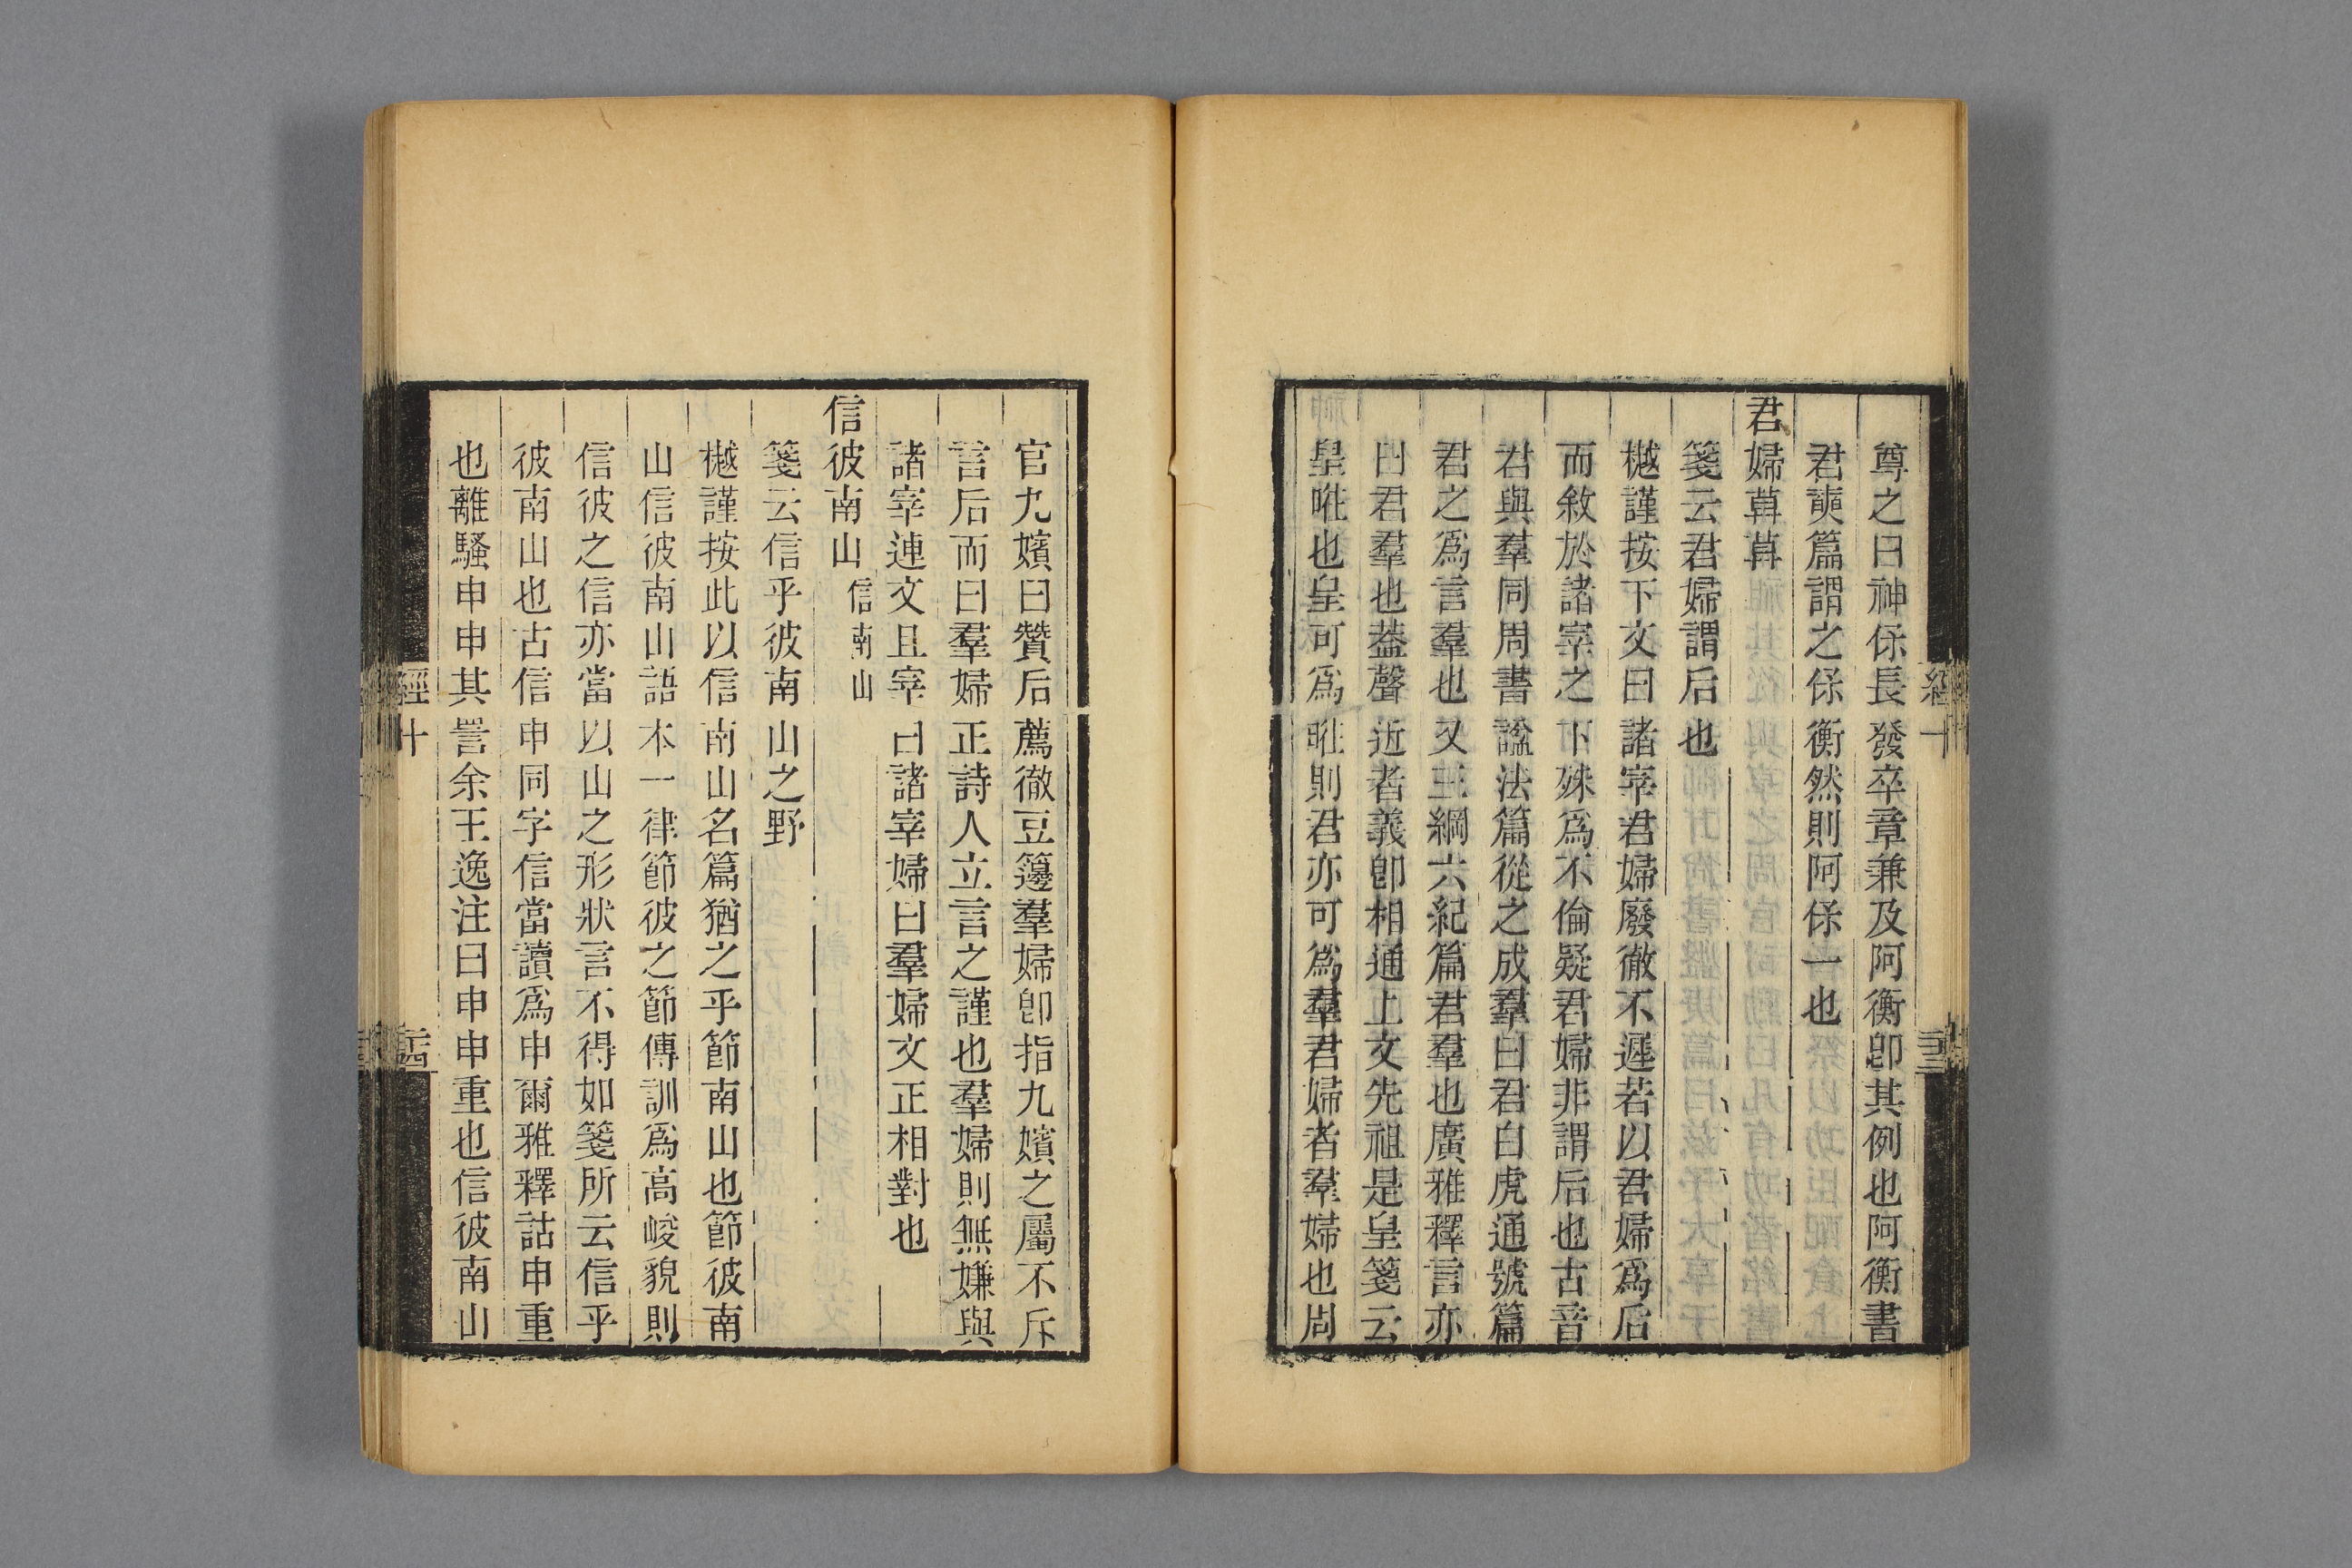 尊之曰神保長發卒章兼及阿衡卽其例也阿衡書
君奭篇謂之保衡然則阿保一也
君婦莫莫
箋云君婦謂后也
樾謹按下文曰諸宰君婦廢徹不遲若以君婦爲后
而敘於諸宰之下殊爲不倫疑君婦非謂后也古音
君與羣同周書諡法篇從之成羣曰君白虎通號篇
君之爲言羣也又三綱六紀篇君羣也廣雅釋言亦
曰君羣也葢聲近者義卽相通上文先祖是皇箋云
皇暀也皇可爲暀則君亦可爲羣君婦者羣婦也周
官九嬪曰贊后薦徹豆籩羣婦卽指九嬪之屬不斥
言后而曰羣婦正詩人立言之謹也羣婦則無嫌與
諸宰連文且宰曰諸宰婦曰羣婦文正相對也
信彼南山 信南山
箋云信乎彼南山之野
樾謹按此以信南山名篇猶之乎節南山也節彼南
山信彼南山語本一律節彼之節傳訓爲高峻貌則
信彼之信亦當以山之形狀言不得如箋所云信乎
彼南山也古信申同字信當讀爲申爾雅釋詁申重
也離騷申申其詈余王逸注曰申申重也信彼南山
經十